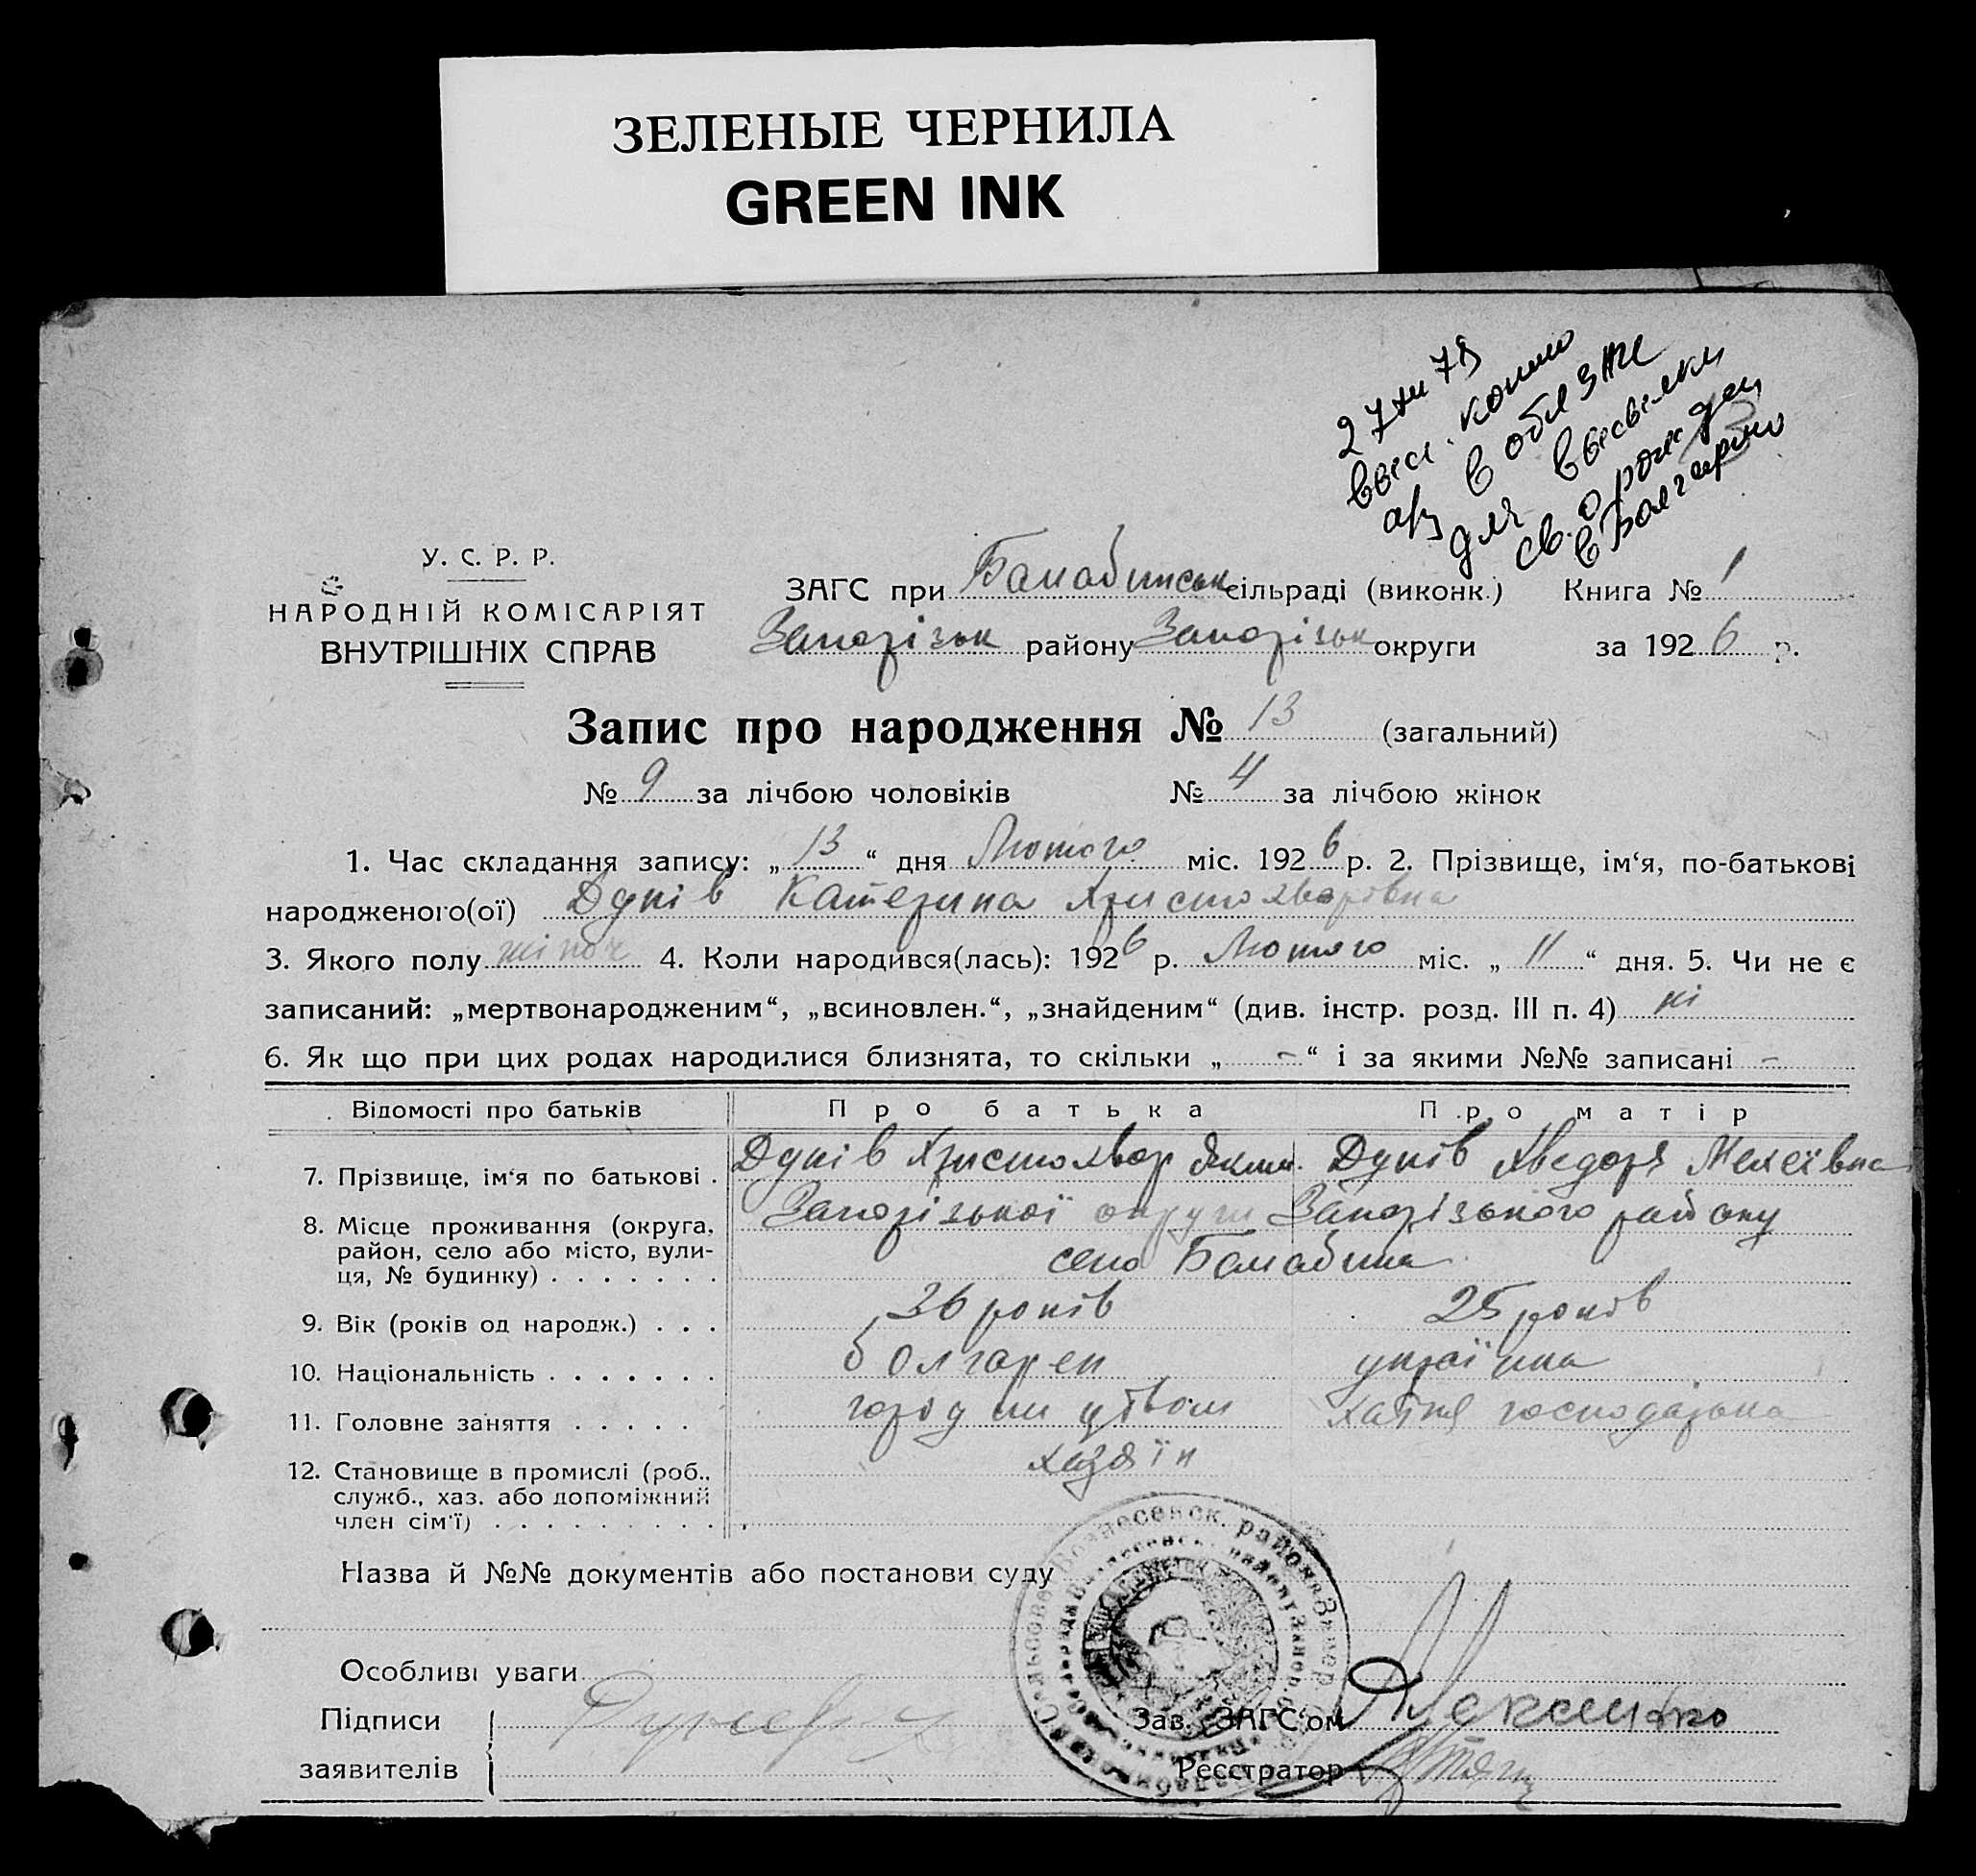 ЗЕЛЕНЫЕ ЧЕРНИЛА
GREEN INK
в обл ЗАГС
для
св. о рожден
в Болгарию
У. С. Р. Р.
НАРОДНІЙ КОМІСАРІЯТ
ВНУТРІШНІХ СПРАВ
ЗАГС при Балабинськ сільраді (виконк.) Книга № 1
Запорізьк району Запорізьк округи за 1926 р.
Запис про народження № 13 (загальний)
№ 9 за лічбою чоловіків № 4 за лічбою жінок
1. Час складання запису: „13“ дня Лютого міс. 1926 р. 2. Прізвище, ім‘я, по-батькові
народженого(ої) Дунів Катерина Христохворівна
3. Якого полу жіноч 4. Коли народився(лась): 1926 р. Лютого міс. „11“ дня. 5. Чи не є
записаний: „мертвонародженим“, „всиновлен.“, „знайденим“ (див. інстр. розд. III п. 4) ні
6. Як що при цих родах народилися близнята, то скільки „ - “ і за якими №№ записані -
Відомості про батьків Про батька Про матір
7. Прізвище, ім‘я по батькові . Дунів Христохвор Дунів Хведоря
8. Місце проживання (округа, район, село або місто, вули-ця, № будинку) . . . . . . . Запорізької округи Запорізького району
село Балабина
9. Вік (років од народж.) . . . 36 років 25 років
10. Національність . . . . . . . болгарен українка
11. Головне заняття . . . . . хатня господарька
12. Становище в промислі (роб., служб., хаз. або допоміжний член сім‘ї) . . . . . . . . . . хазяїн
Назва й №№ документів або постанови суду
Особливі уваги
Підписи
заявителів
Зав. ЗАГС‘ом
Реєстратор